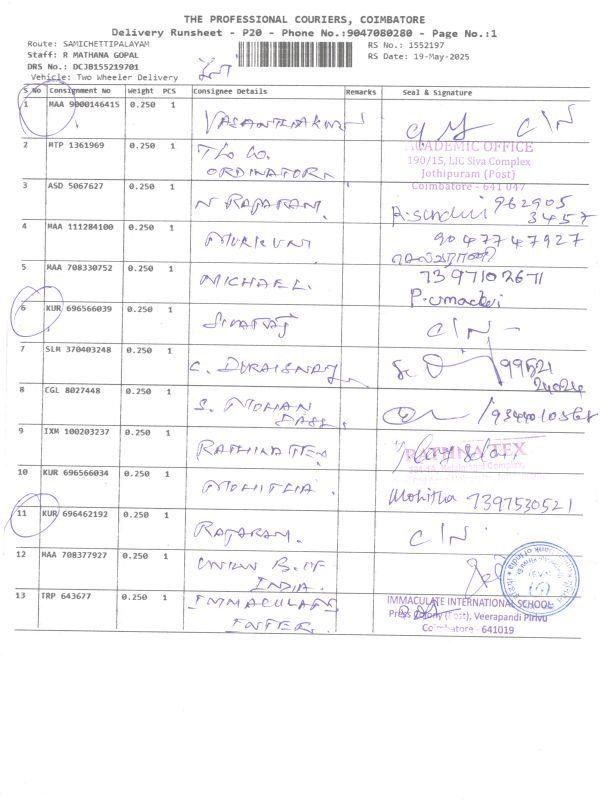 THE PROFESSIONAL COURIERS, COIMBATORE
Delivery Runsheet - P20 - Phone No.:9047080280 - Page No.:1
Route: SAMICHETTIPALAYAM
RS No.: 1552197
Staff: R MATHANA GOPAL
RS Date: 19-May-2025
DRS No.: DCJB155219701
Vehicle: Two Wheeler Delivery
S No Consignment No Weight PCS Consignee Details Remarks Seal & Signature
1 MAA 9000146415 0.250 1 C/N
2 MTP 1361969 0.250 1 ORDINATOR
ACADEMIC OFFICE
190/15, LIC Siva Complex
Jothipuram (Post)
Coimbatore - 641 047
3 ASD 5067627 0.250 1 N RAJARAM 962905
3457
4 MAA 111284100 0.250 1 9047747927
5 MAA 708330752 0.250 1 MICHAEL. 7397102671
6 KUR 696566039 0.250 1 SIVARAJ C/N
7 SLM 370403248 0.250 1 C. DURAISWAMY 99521
8 CGL 8027448 0.250 1 S. MOHAN
DASS.
9 IXM 100203237 0.250 1 RATHINA TEX RATHNA TEX
10 KUR 696566034 0.250 1 MOHITHA. Mohitha 7397530521
11 KUR 696462192 0.250 1 RAJARAM. C/N
12 MAA 708377927 0.250 1 UNION B. OF
INDIA.
13 TRP 643677 0.250 1 IMMACULATE
INTER.
IMMACULATE INTERNATIONAL SCHOOL
Press Colony (Post), Veerapandi Pirivu
Coimbatore - 641019